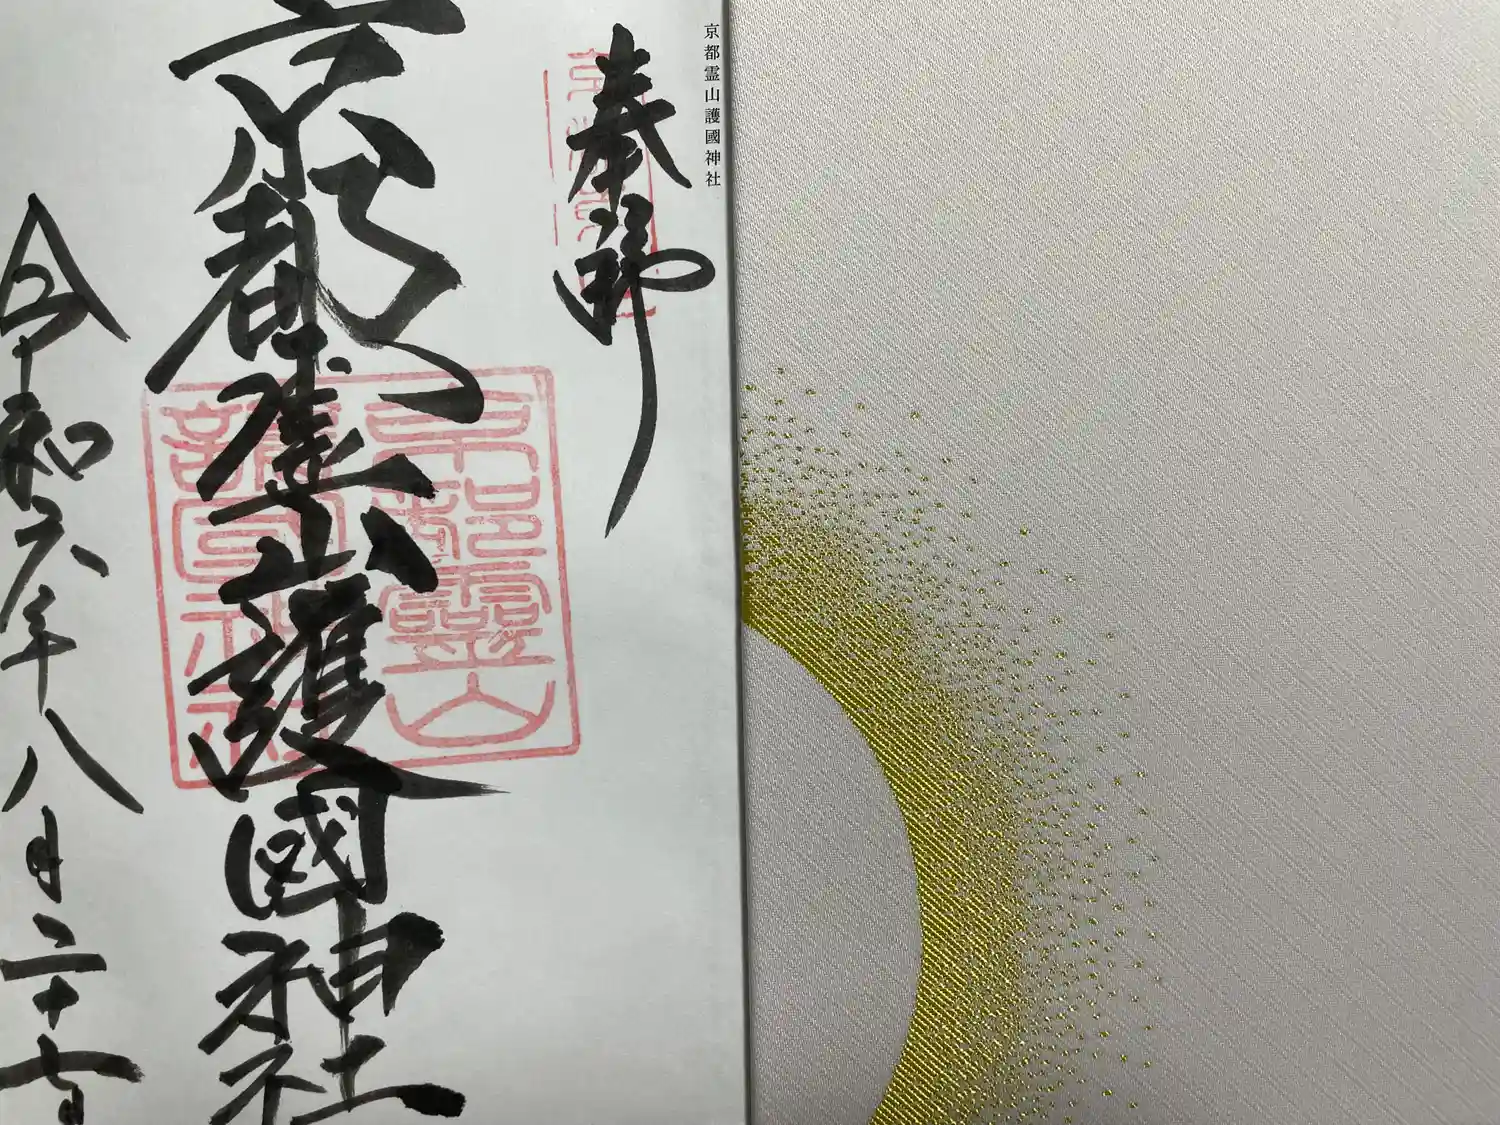 京都霊山護國神社
奉拝
京都霊山護國神社
京都靈山
護國神社
令和六年八月二十